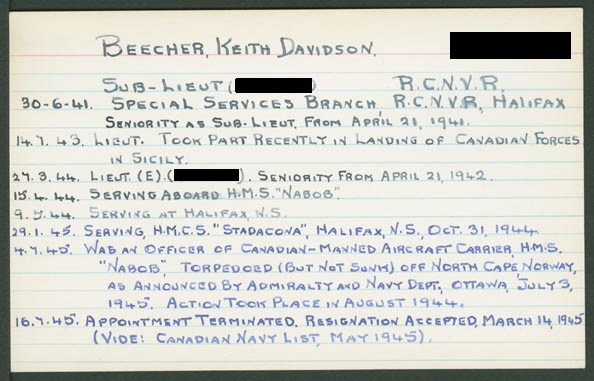 BEECHER, KEITH DAVIDSON.
SUB-LIEUT ( ) R.C.N.V.R.
30-6-41. SPECIAL SERVICES BRANCH, R.C.N.V.R, HALIFAX
SENIORITY AS SUB-LIEUT, FROM APRIL 21, 1941.
14.7.43. LIEUT. TOOK PART RECENTLY IN LANDING OF CANADIAN FORCES
IN SICILY.
27.3.44. LIEUT. (E).( ). SENIORITY FROM APRIL 21, 1942.
15.4.44. SERVING ABOARD H.M.S. "NABOB".
9.5.44. SERVING AT HALIFAX, N.S.
29.1.45. SERVING, H.M.C.S. "STADACONA", HALIFAX, N.S., OCT. 31, 1944.
4.7.45. WAS AN OFFICER OF CANADIAN-MANNED AIRCRAFT CARRIER, H.M.S.
"NABOB", TORPEDOED (BUT NOT SUNK) OFF NORTH CAPE, NORWAY,
AS ANNOUNCED BY ADMIRALTY AND NAVY DEPT., OTTAWA, JULY 3,
1945. ACTION TOOK PLACE IN AUGUST 1944.
16.7.45. APPOINTMENT TERMINATED, RESIGNATION ACCEPTED, MARCH 14, 1945
(VIDE: CANADIAN NAVY LIST, MAY 1945).